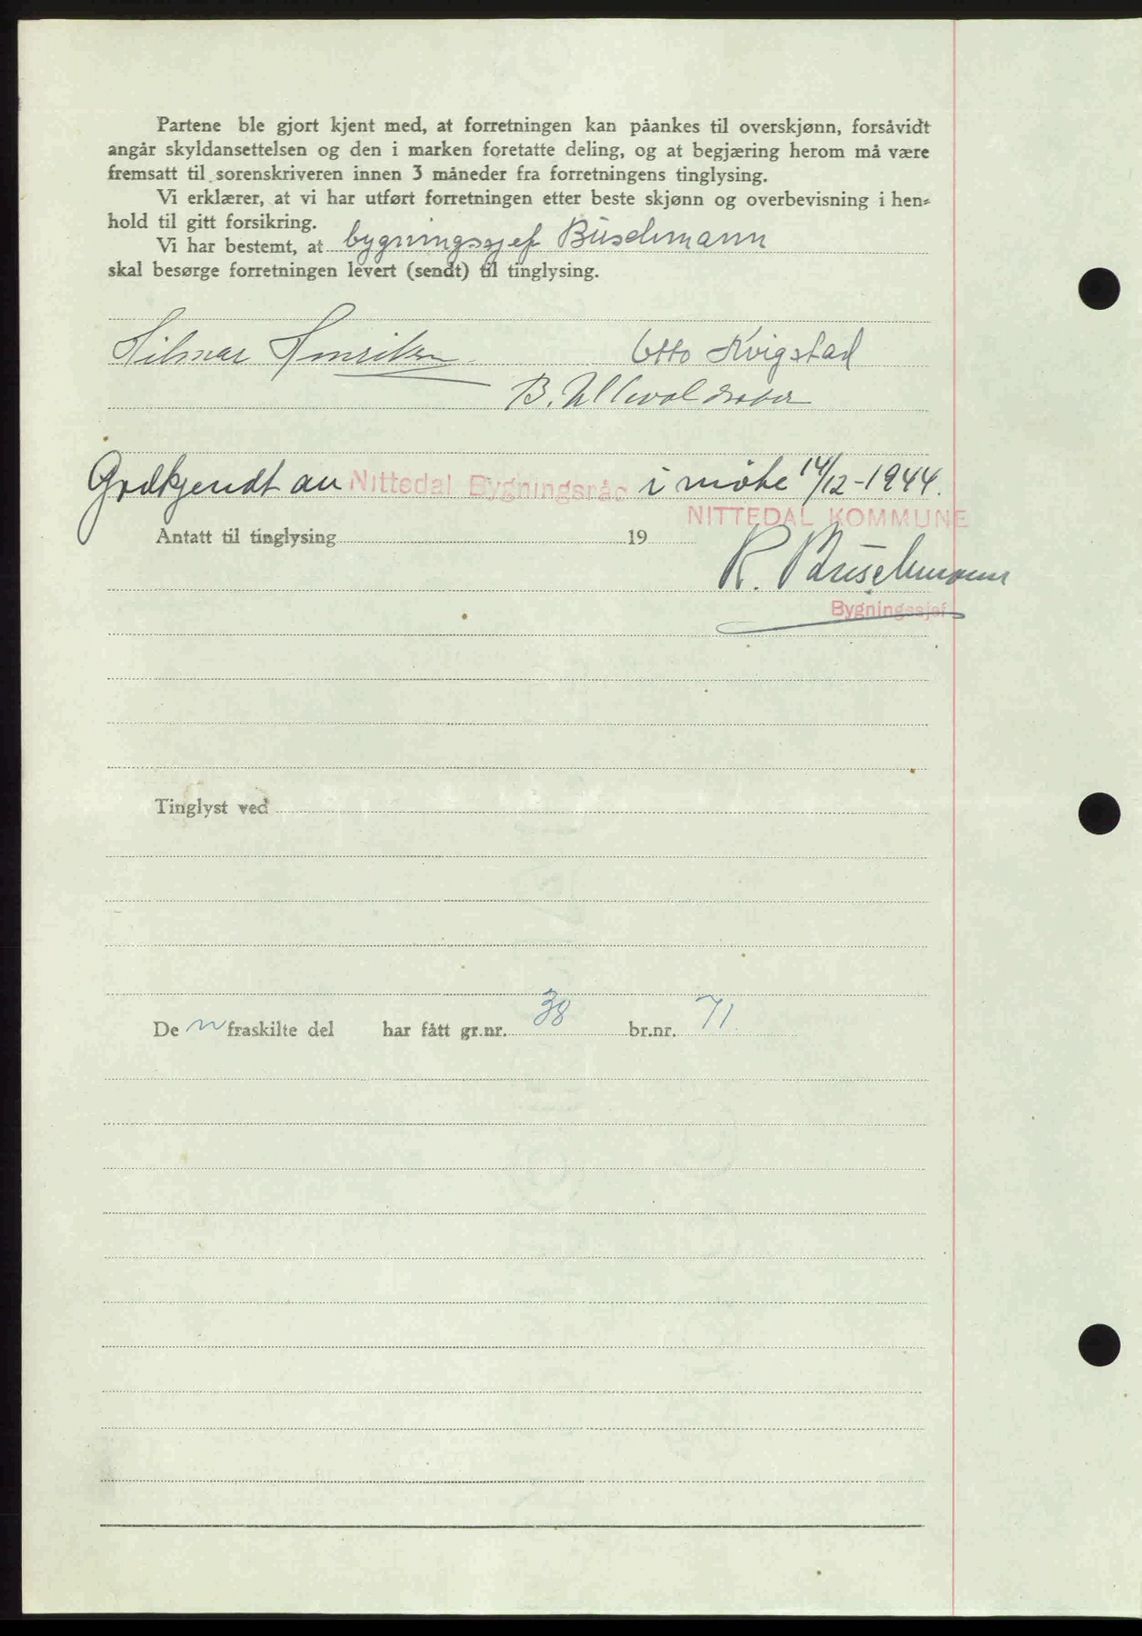 Partene ble gjort kjent med, at forretningen kan påankes til overskjønn, forsåvidt
angår skyldansettelsen og den i marken foretatte deling, og at begjæring herom må være
fremsatt til sorenskriveren innen 3 måneder fra forretningens tinglysing.
Vi erklærer, at vi har utført forretningen etter beste skjønn og overbevisning i hen=
hold til gitt forsikring.
Vi har bestemt, at bygningssjef Büschmann
skal besørge forretningen levert (sendt) til tinglysing.
Hilmar Henriksen Otto Kvigstad
B.
Godkjendt av Nittedal Bygningsråd i møte 14/12-1944.
NITTEDAL KOMMUNE
Antatt til tinglysing 19
R. Büschmann
Bygningssjef
Tinglyst ved
De n fraskilte del har fått gr.nr. 38 br.nr. 71